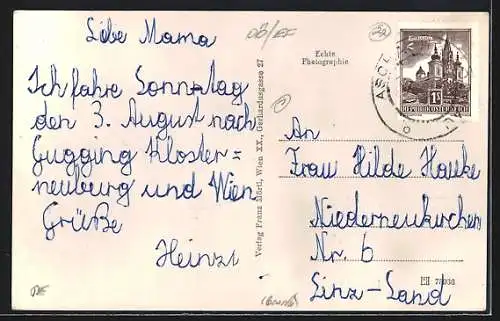 Liebe Mama
Ich fahre Sonntag
den 3. August nach
Gugging Kloster=
neuburg und Wien
Grüße
Heinzi
OÖ/EF
Echte
Photographie
Verlag Franz Mörtl, Wien XX., Gerhardusgasse 27
REPUBLIK ÖSTERREICH
1S
An
Frau Hilde Hauke
Niederneukirchen
Nr. 6
Linz-Land